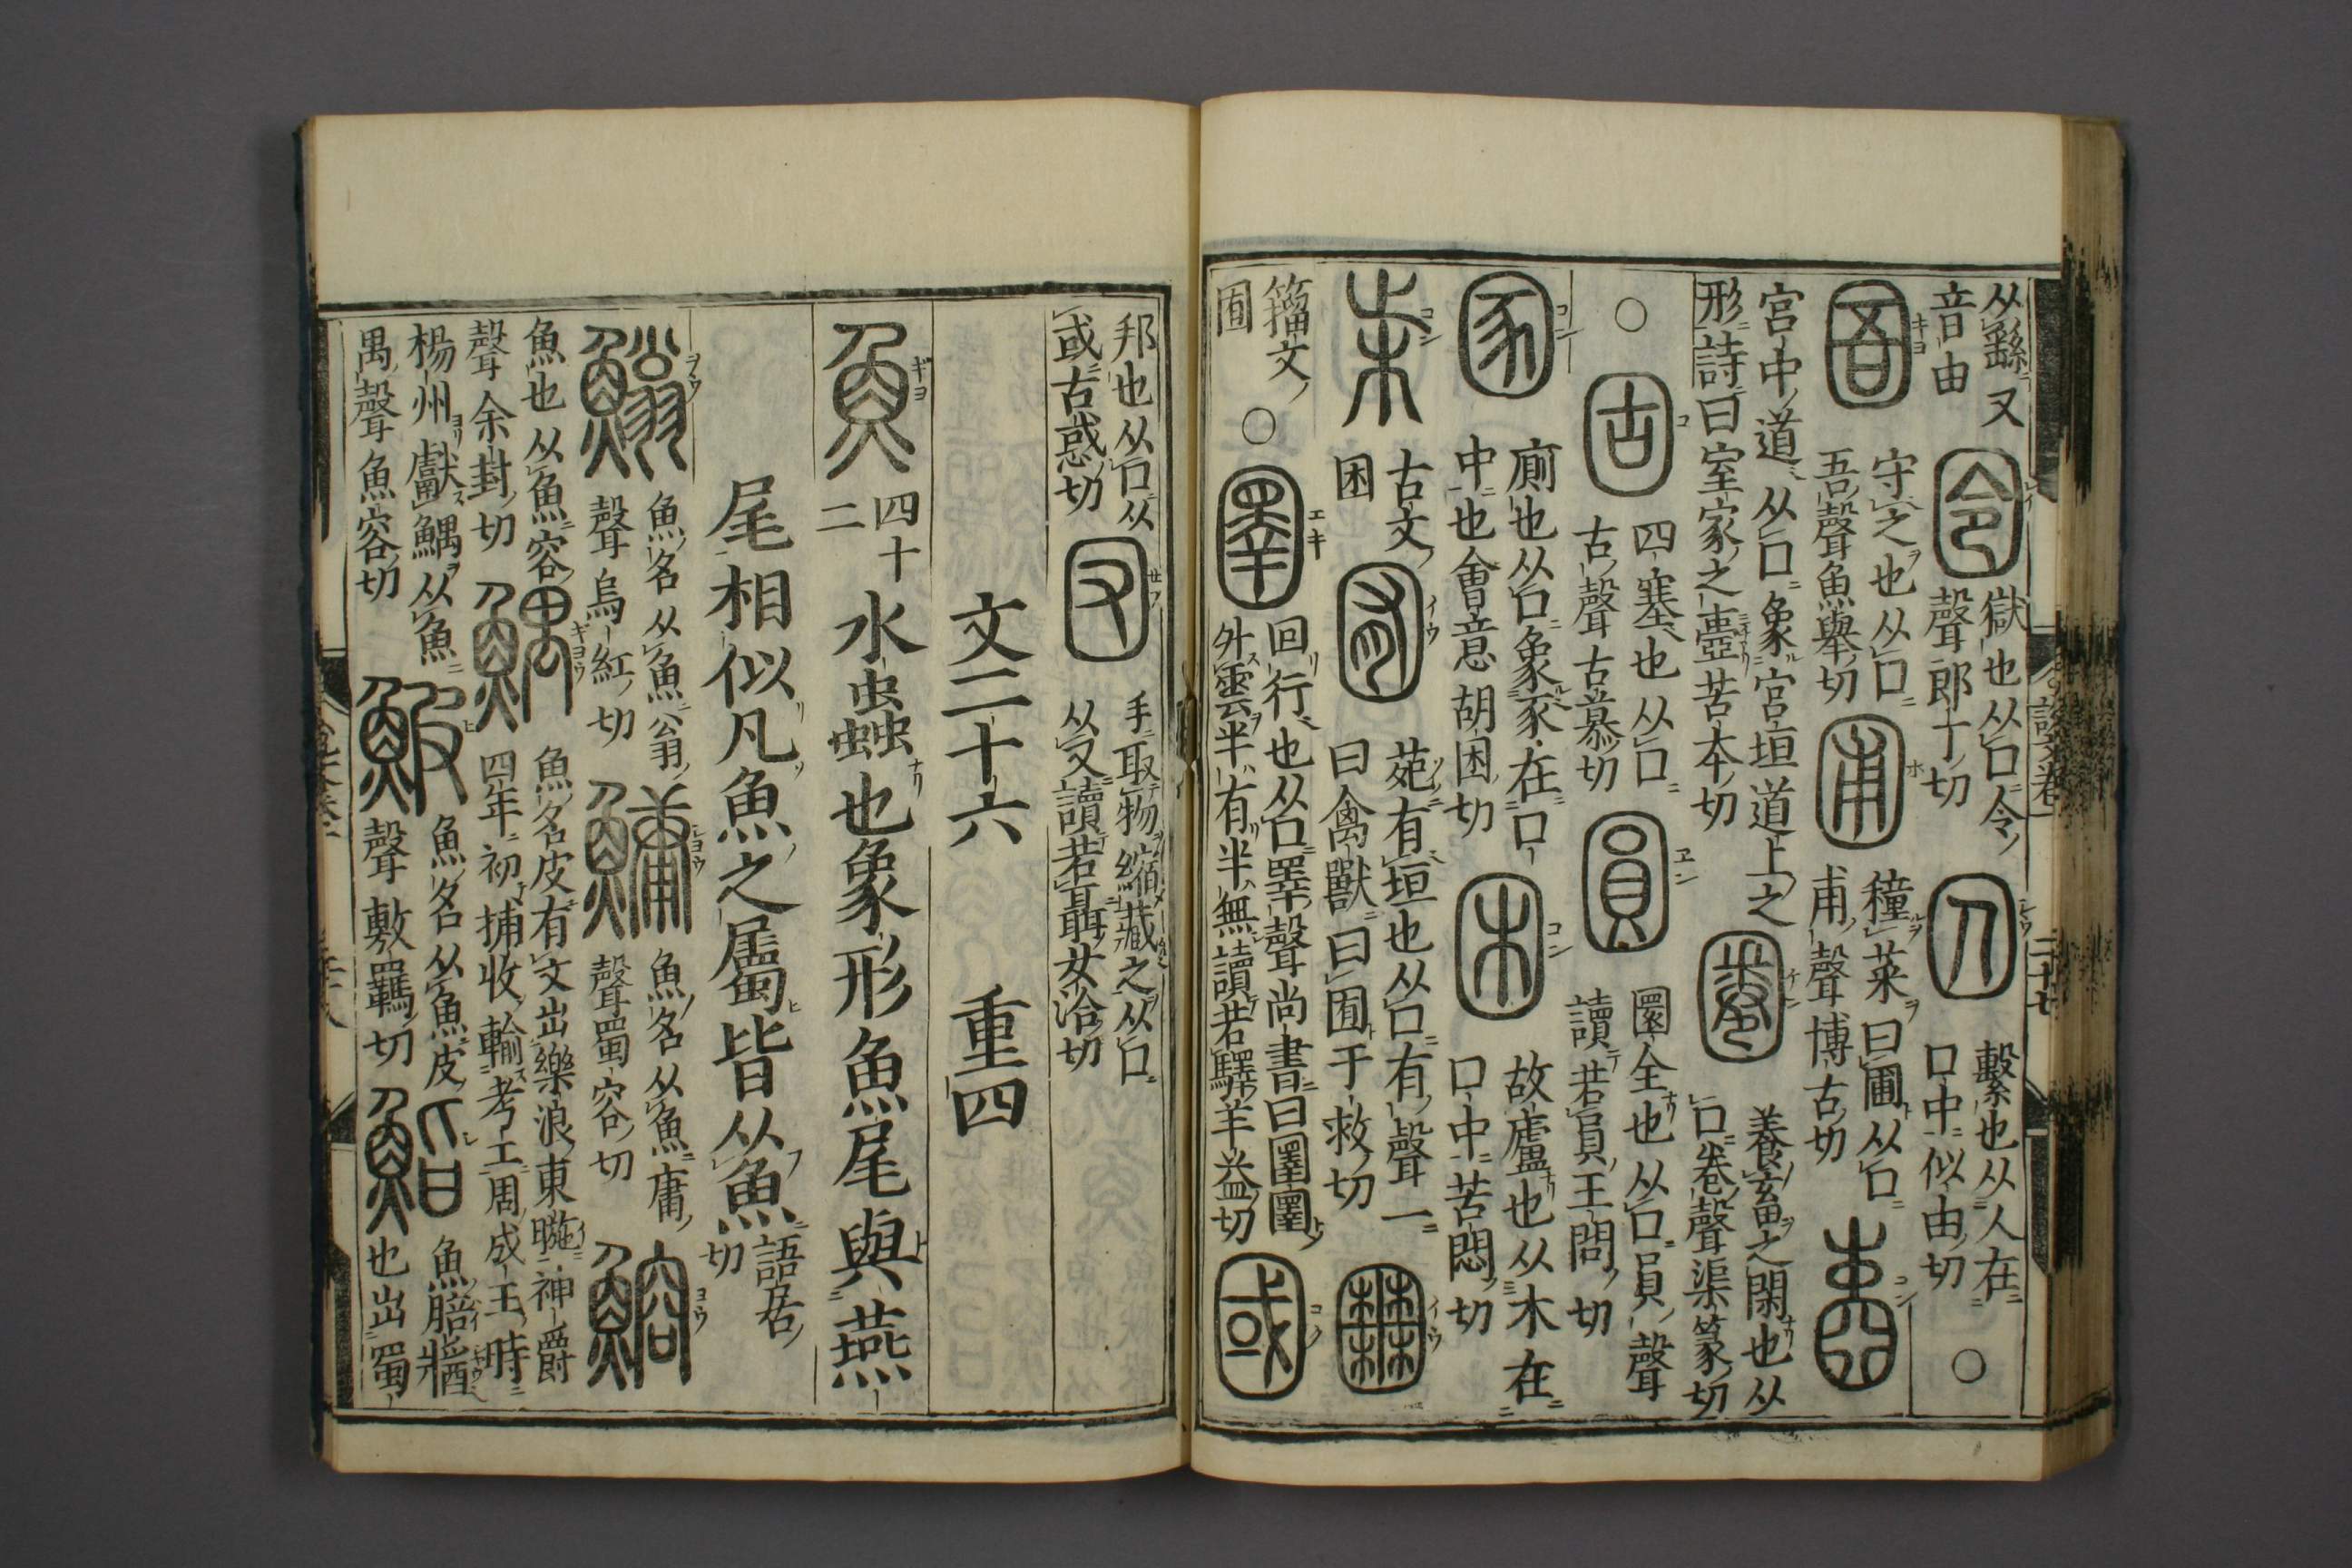 从繇又音由 囹 獄也从囗令聲郎丁切 囚 繫也从人在囗中似由切 ○
圄 守之也从囗吾聲魚舉切 圃 種菜曰圃从囗甫聲博古切 壼
宮中道从囗象宮垣道上之形詩曰室家之壼苦本切 圈 養畜之閑也从囗卷聲渠篆切
○ 固 四塞也从囗古聲古慕切 圓 圜全也从囗員聲讀若員王問切
圂 廁也从囗象豕在囗中也會意胡困切 困 故廬也从木在囗中苦悶切
朱 古文困 囿 苑有垣也从囗有聲一曰禽獸曰囿于救切 𡈹
籀文囿 ○ 圛 回行也从囗睪聲尚書曰圛圛升雲半有半無讀若驛羊益切 國
邦也从囗从或古惑切 㘝 手取物縮藏之从囗从又讀若聶女洽切
文二十六 重四
魚 四十二 水蟲也象形魚尾與燕
尾相似凡魚之屬皆从魚 語居切
𩺋 魚名从魚翁聲烏紅切 鱅 魚名从魚庸聲蜀容切 鰫
魚也从魚容聲余封切 鰅 魚名皮有文出樂浪東暆神爵四年初捕收輸考工周成王時
楊州獻鰅从魚禺聲魚容切 鮍 魚名从魚皮聲敷羈切 鮨 魚䐑醬也出蜀